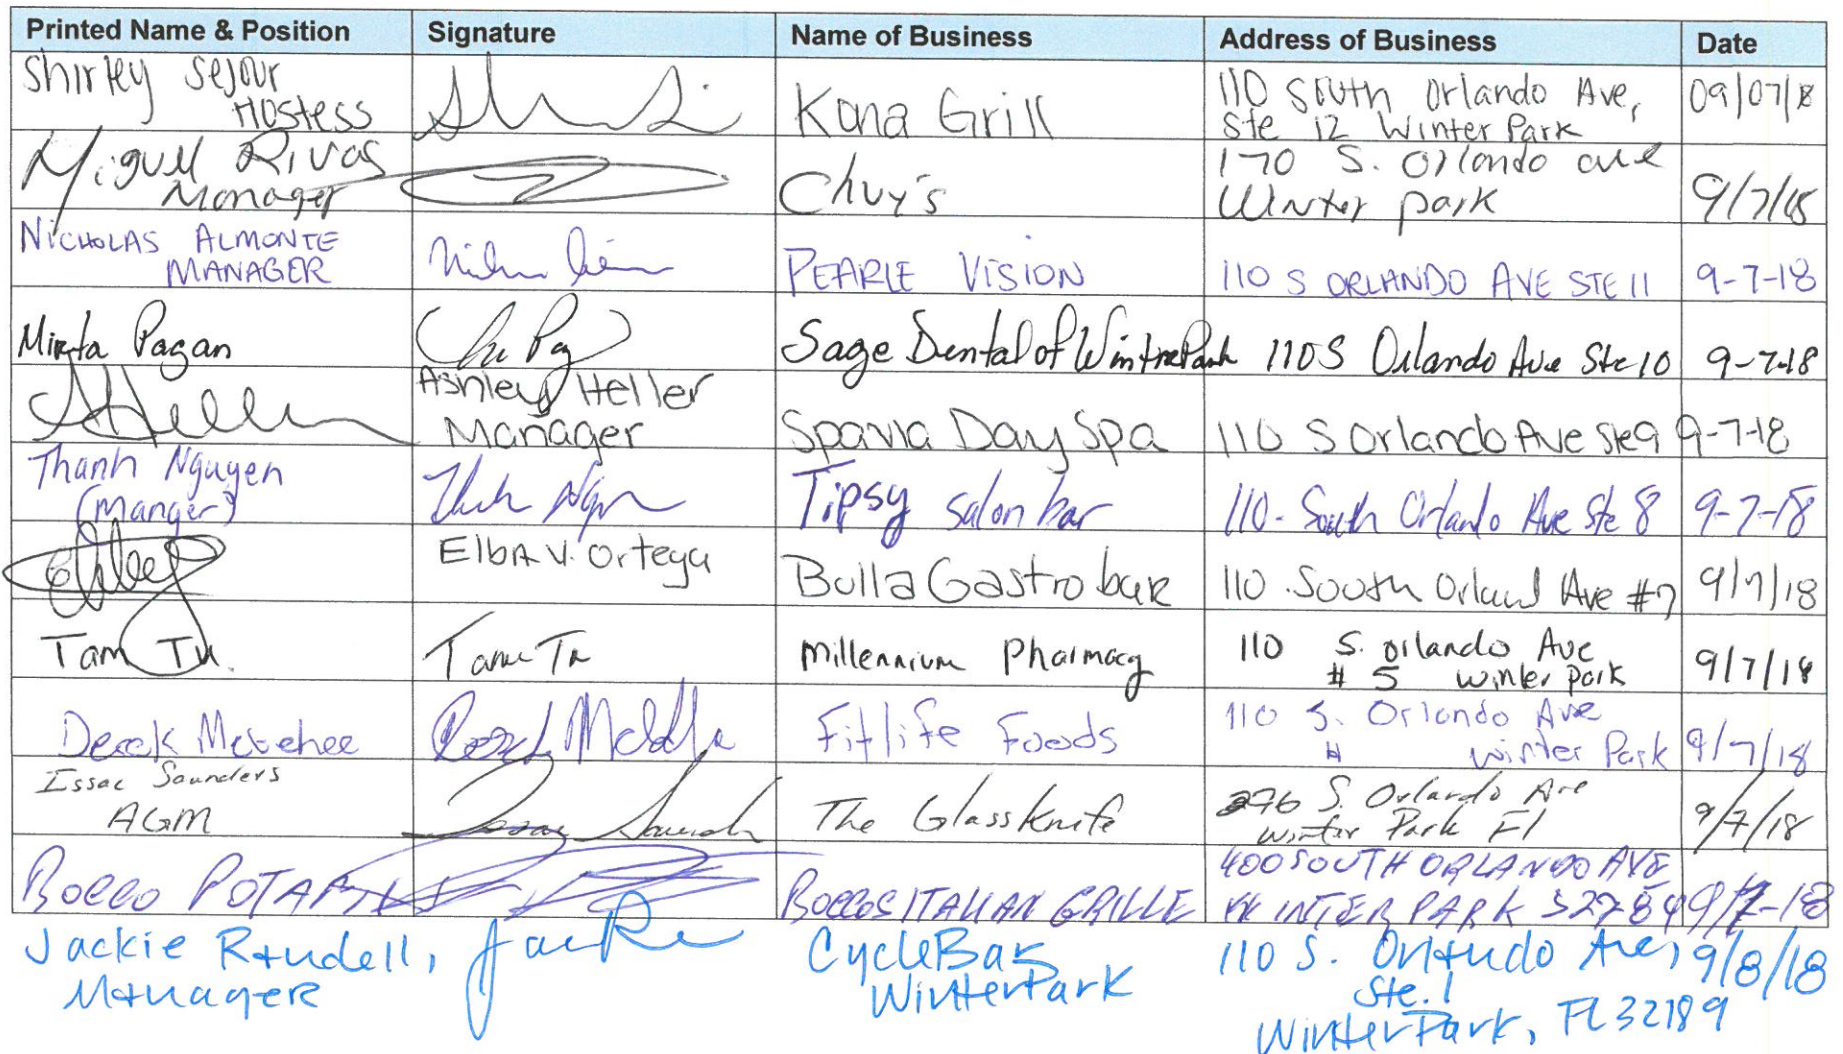 Printed Name & Position Signature Name of Business Address of Business Date
Shirley Sejour
Hostess
Kona Grill
110 South Orlando Ave,
Ste 12 Winter Park
09/07/18
Miguel Rivas
Manager
Chuy's
170 S. Orlando ave
Winter park
9/7/18
NICHOLAS ALMONTE
MANAGER
PEARLE VISION
110 S ORLANDO AVE STE 11
9-7-18
Mirta Pagan
Sage Dental of
110 S Orlando Ave Ste 10
9-7-18
Ashley Heller
Manager
Spavia Day Spa
110 S Orlando Ave Ste 9
9-7-18
Thanh Nguyen
(Manger)
Tipsy salon bar
110. South Orlando Ave Ste 8
9-7-18
Elba V. Ortega
Bulla Gastrobar
110 South Ave #7
9/7/18
Tam
Millennium Pharmacy
110 S. orlando Ave
# 5 winter park
9/7/18
Derek
Fitlife Foods
110 S. Orlando Ave
# winter Park
9/7/18
Issac Saunders
AGM
The Glass Knife
276 S. Orlando Ave
Winter Park Fl
9/7/18
ROCCO POTAMI
ROCCOS ITALIAN GRILLE
400 SOUTH ORLANDO AVE
WINTER PARK 32789
9/7-18
Jackie Randell,
Manager
CycleBar
Winter Park
110 S. Orlando Ave,
Ste. 1
Winter Park, FL 32189
9/8/18